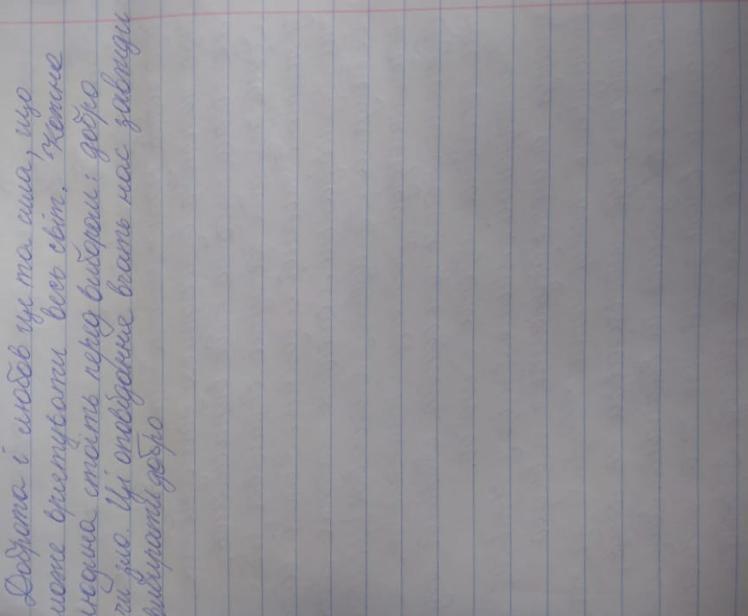 Доброта і любов це та сила, що
може врятувати весь світ. Кожна
людина стоїть перед вибором: добро
чи зло. Ці оповідання вчать нас завжди
вибирати добро